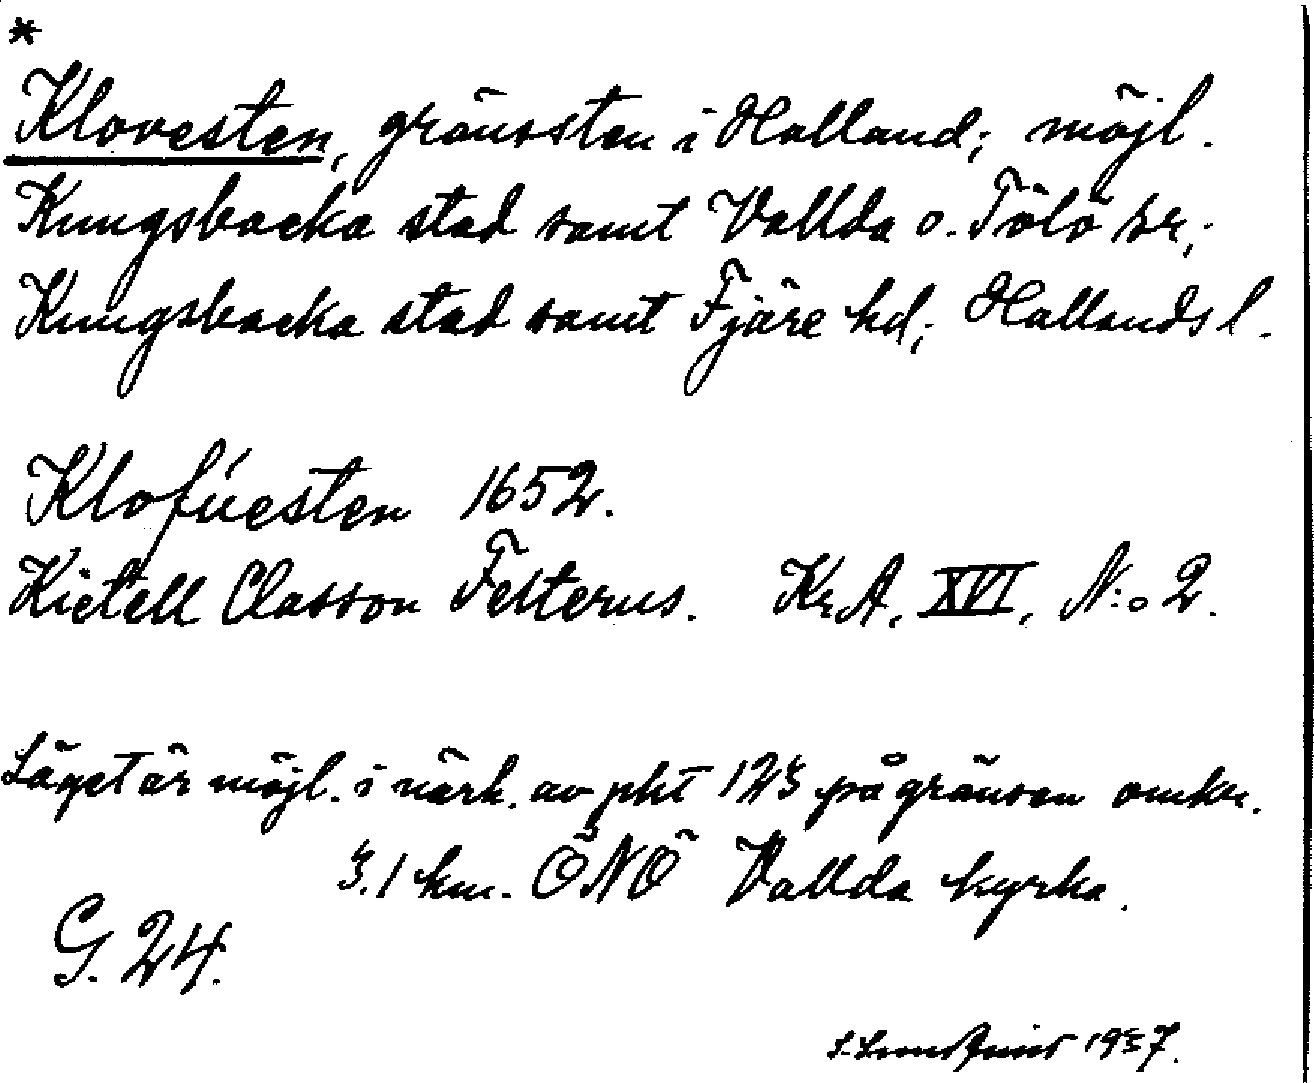 *
Klovesten, gränssten i Halland; möjl.
Kungsbacka stad samt Vallda o. Tölö sr;
Kungsbacka stad samt Fjäre hd; Hallands l.
Klofúesten 1652.
Kietell Classon Felterus. Kr.A. XVI, N:o 2.
Läget är möjl. i närh. av pkt 123 på gränsen omkr.
3.1 km. ÖNÖ Vallda kyrka.
G. 24.
1937.